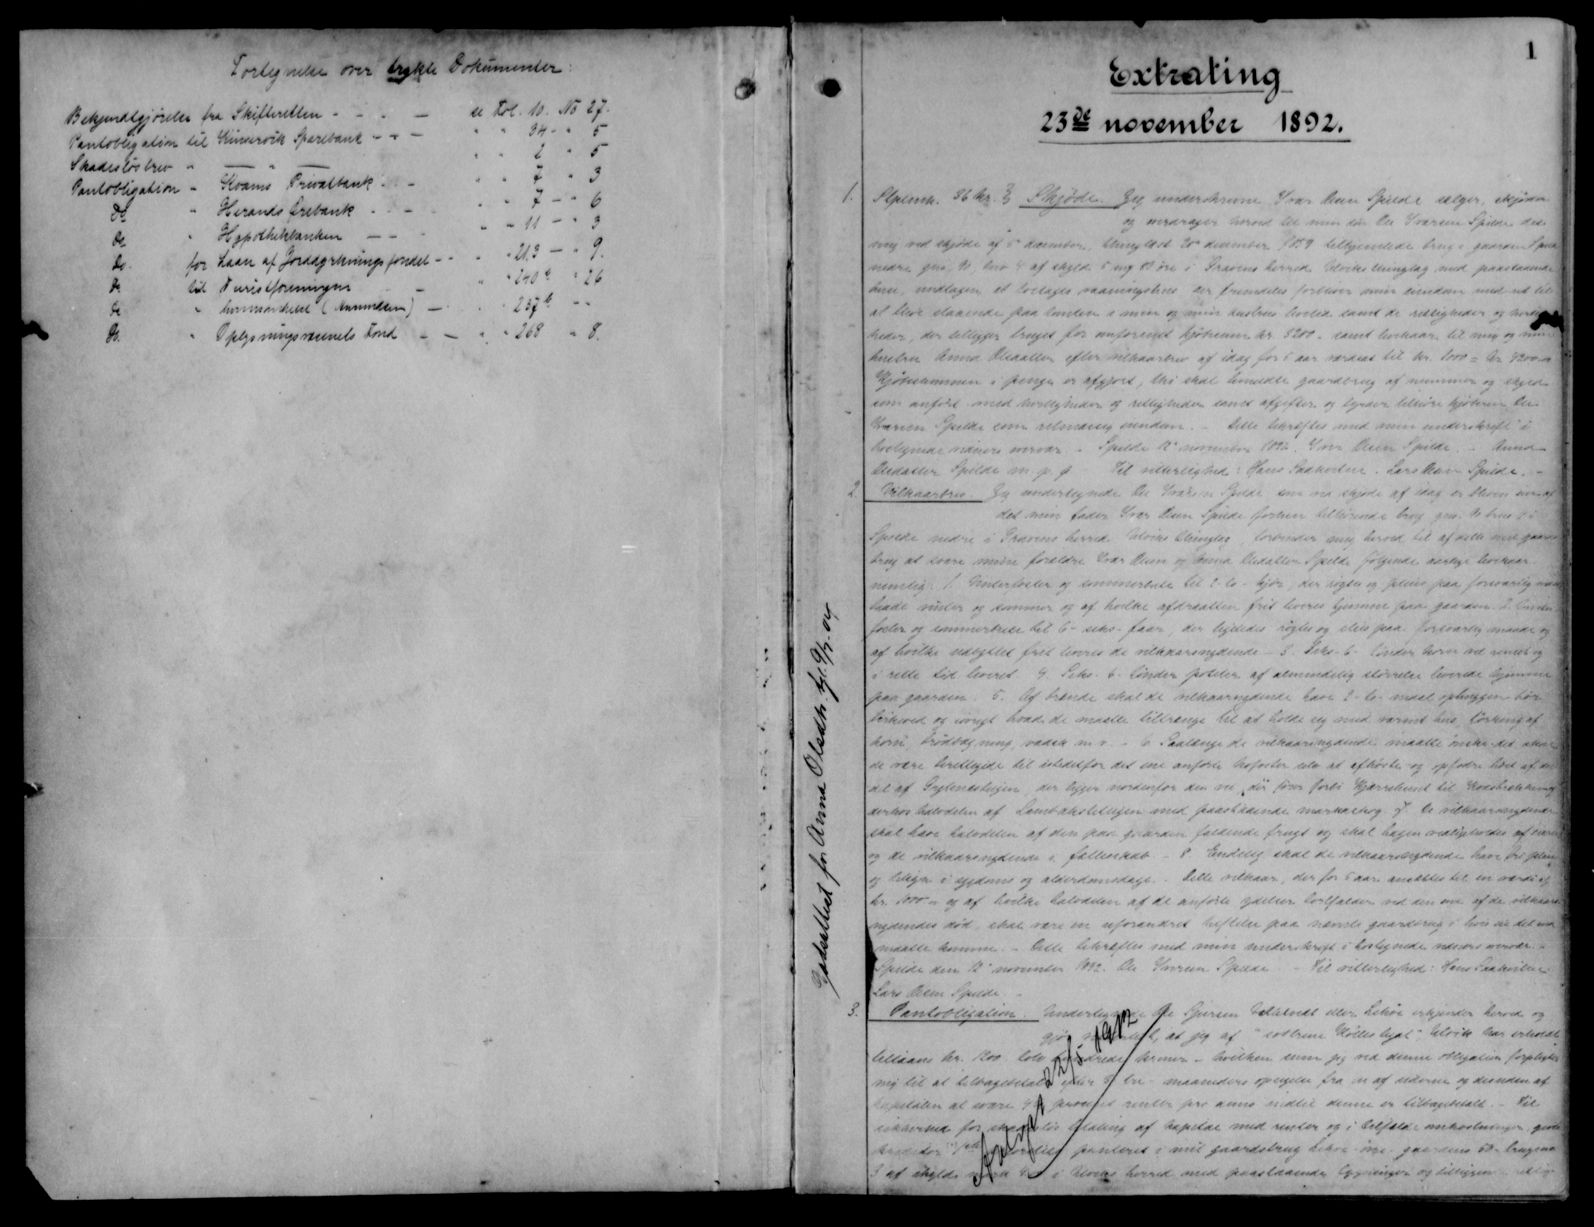 Fortegnelse over trykte Dokumenter:
Bekjendtgjørelse fra Skifteretten - - - - se Fol. 10. No 27.
Pantobligation til Kinservik Sparebank - - - " " 34 - " 5
Skadesløsbrev " — " — " " 2 " 5
Pantobligation " Kvams Privatbank - - " " 7 " 3
Do " Herands Ørebank - - - " " 7 - " 6
Do " Hypothekbanken - - - " " 11 - " 3
Do. for Laan af Jorddyrkningsfondet - - " 213 - " 9.
Do til Turistforeningen - - " 240 b " 26
Do " - " 257 b " -
Do. " Oplysningsvæsenets Fond - - " " 268 " 8.
Gydsattest for Anna Olsdtr.
1
Extrating
23de november 1892.
1. Stplmrk. 36 kr. Skjøde. Jeg underskrevne Iver Olsen Spilde sælger, skjøder
og overdrager herved til min søn Ole Iversen Spilde det
mig ved skjøde af 5 december, thinglæst 20 december 1859 tilhjemlede brug i gaarden Spilde
nedre, gno. 90, bno 4 af skyld 5 mrk i Gravens herred Ulviks thinglag med paastaaende
huse, undtagen et toetages vaaningshus der fremdeles forbliver min eiendom med ret til
at blive staaende paa tomten i min og min hustrus levetid samt de rettigheder og herlig-
heder, der tilligger bruget for omforenet kjøbesum kr. 3200 - samt levekaar til mig og min
hustru Anna Olsdatter efter vilkaarsbrev af idag for 5 aar værdsat til kr. 1000 = kr. 4200
Kjøbesummen i penge er afgjort, thi skal bemeldte gaardbrug af nummer og skyld
som anført med herligheder og rettigheder samt afgifter og byrder tilhøre kjøberen Ole
Iversen Spilde som retmæssig eiendom. - Dette bekræftes med min underskrift i
hostegnede vidners overvær. - Spilde 12 november 1892. Iver Olsen Spilde. - Anna
Olsdatter Spilde m. p. p. Til vitterlighed: Hans Lars Olsen Spilde. -
2. Vilkaarsbrev Jeg undertegnede Ole Iversen Spilde som ved skjøde af idag er bleven eier af
det min fader Iver Olsen Spilde forhen tilhørende brug gno. 90 bno 4 i
Spilde nedre i Gravens herred Ulviks thinglag, forbinder mig herved til af dette mit gaards-
brug at svare mine forældre Iver Olsen og Anna Olsdatter Spilde følgende aarlige levekaar
nemlig: 1. Vinterfoster og sommerbeite til 2 - to - kjør, der røgtes og pleies paa forsvarlig maade
baade vinter og sommer og af hvilke afdraatten frit leveres hjemme paa gaarden. 2. Vinter-
foster og sommerbeite til 6 - seks - faar, der ligeledes røgtes og pleies paa forsvarlig maade og
af hvilke udbyttet frit leveres de vilkaarsnydende - 3. Seks - 6 - tønder korn vel renset og
i rette tid leveret. 4. Seks - 6 - tønder poteter af almindelig størrelse leverede hjemme
paa gaarden. 5. Af brænde skal de vilkaarsnydende have 2 - to - maal ophuggen tør
birkeved og iøvrigt hvad de maatte tiltrænge til at holde sig med varmt hus, tørkning af
korn, brødbagning, vadsk m. v. - 6. Saalænge de vilkaarsnydende maatte ønske det skal
de være berettigede til istedetfor det ene anførte
del af der ligger nordenfor den vei, der fører forbi til
derhos halvdelen af med paastaaende 7. De vilkaarsnydende
skal have halvdelen af den paa gaarden faldende frugt og skal hagen vedligeholdes af eieren
og de vilkaarsnydende i fællesskab. - 8. Endelig skal de vilkaarsnydende have fri pleie
og tilsyn i sygdoms og alderdomsdage. - Dette vilkaar, der for 5 aar ansættes til en værdi af
kr. 1000 - og af hvilke halvdelen af de anførte ydelser bortfalder ved den ene af de vilkaars-
nydendes død, skal være en uforandret heftelse paa nævnte gaardsbrug i hvis eie det end
maatte komme. - Dette bekræftes med min underskrift i hostegnede vidners overvær. -
Spilde den 12 november 1892. Ole Iversen Spilde. - Til vitterlighed: Hans
Lars Olsen Spilde -
3. Pantobligation. Undertegnede Ole Gjersen eller Lekve erkjender herved og
gjør vitterligt, at jeg af " Ulvik har erholdt
tillaans kr. 1200 tolv hundrede kroner - hvilken sum jeg ved denne obligation forpligter
mig til at tilbagebetale efter 3 tre - maaneders opsigelse fra en af siderne og desuden af
kapitalen at svare procent renter pro anno indtil denne er tilbagebetalt. - Til
sikkerhed for skadesløs betaling af kapital med renter og i tilfælde omkostninger, gives
kreditor panteret i mit gaardsbrug Lekve øvre, gaardens bruges no
3 af skyld i Ulviks herred med paastaaende bygninger og tilliggende
Avlyst 22/5 1912